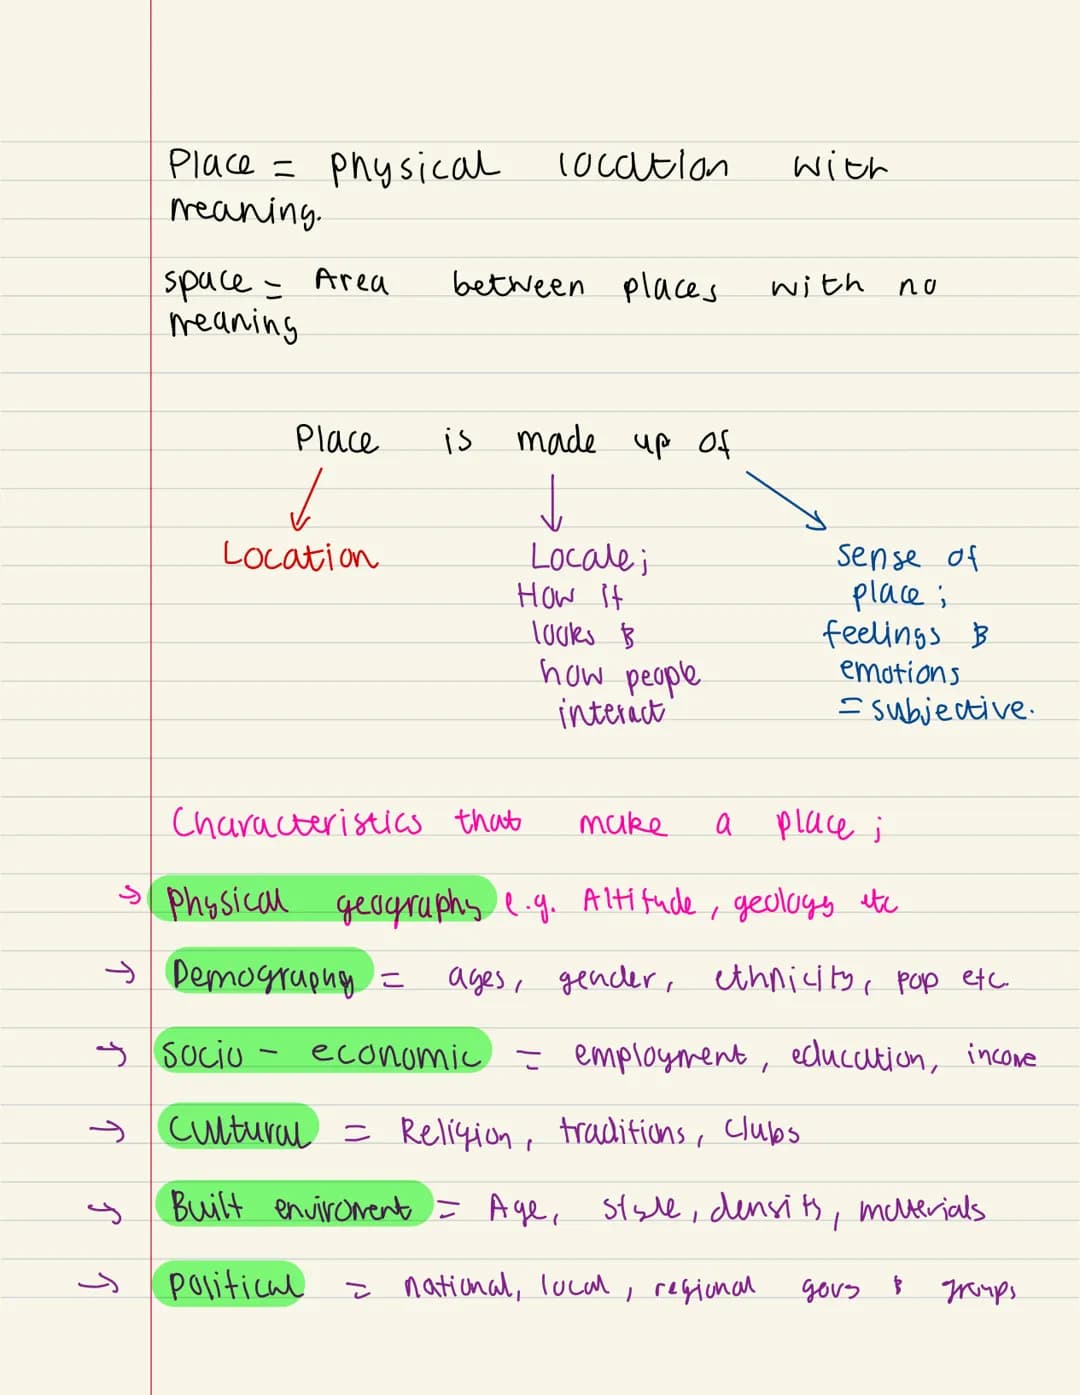 Place = physical location with
meaning.
space = Area between places with no
meaning
Place is made up of
Location
Locale;
How it
looks &
how people
interact
sense of
place;
feelings &
emotions
= subjective.
Characteristics that make a place;
→ Physical geography e.g. Altitude, geology etc
→ Demography = ages, gender, ethnicity, pop etc.
→ socio - economic = employment, education, income
→ Cultural = Religion, traditions, clubs
→ Built enviroment = Age, style, density, materials
→ political = national, local, regional govs & groups